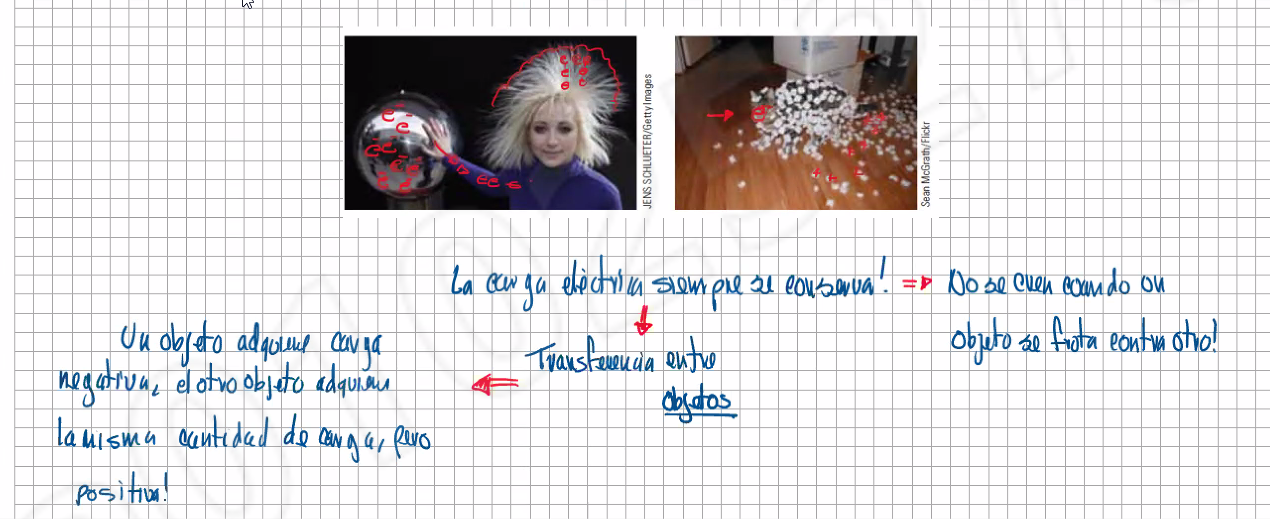 JENS SCHLUETER/Getty Images
Sean McGrath/Flickr
e⁻ e⁻ e⁻ e⁻ e⁻
e e e
+ + + +
La carga eléctrica siempre se conserva! => No se crea cuando un
objeto se frota contra otro!
Transferencia entre
objetos
Un objeto adquiere carga
negativa, el otro objeto adquiere
la misma cantidad de carga, pero
positiva!